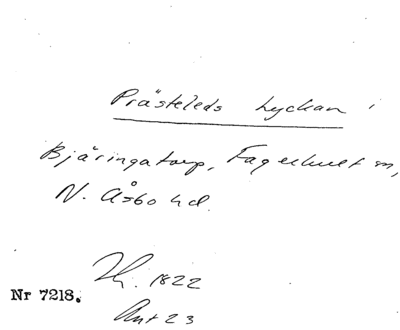 Prästeleds Lyckan i
Bjäringatorp, Fagerhult m,
N. Åsbo hd.
Th. 1822
Nr 7218.
Ant 23